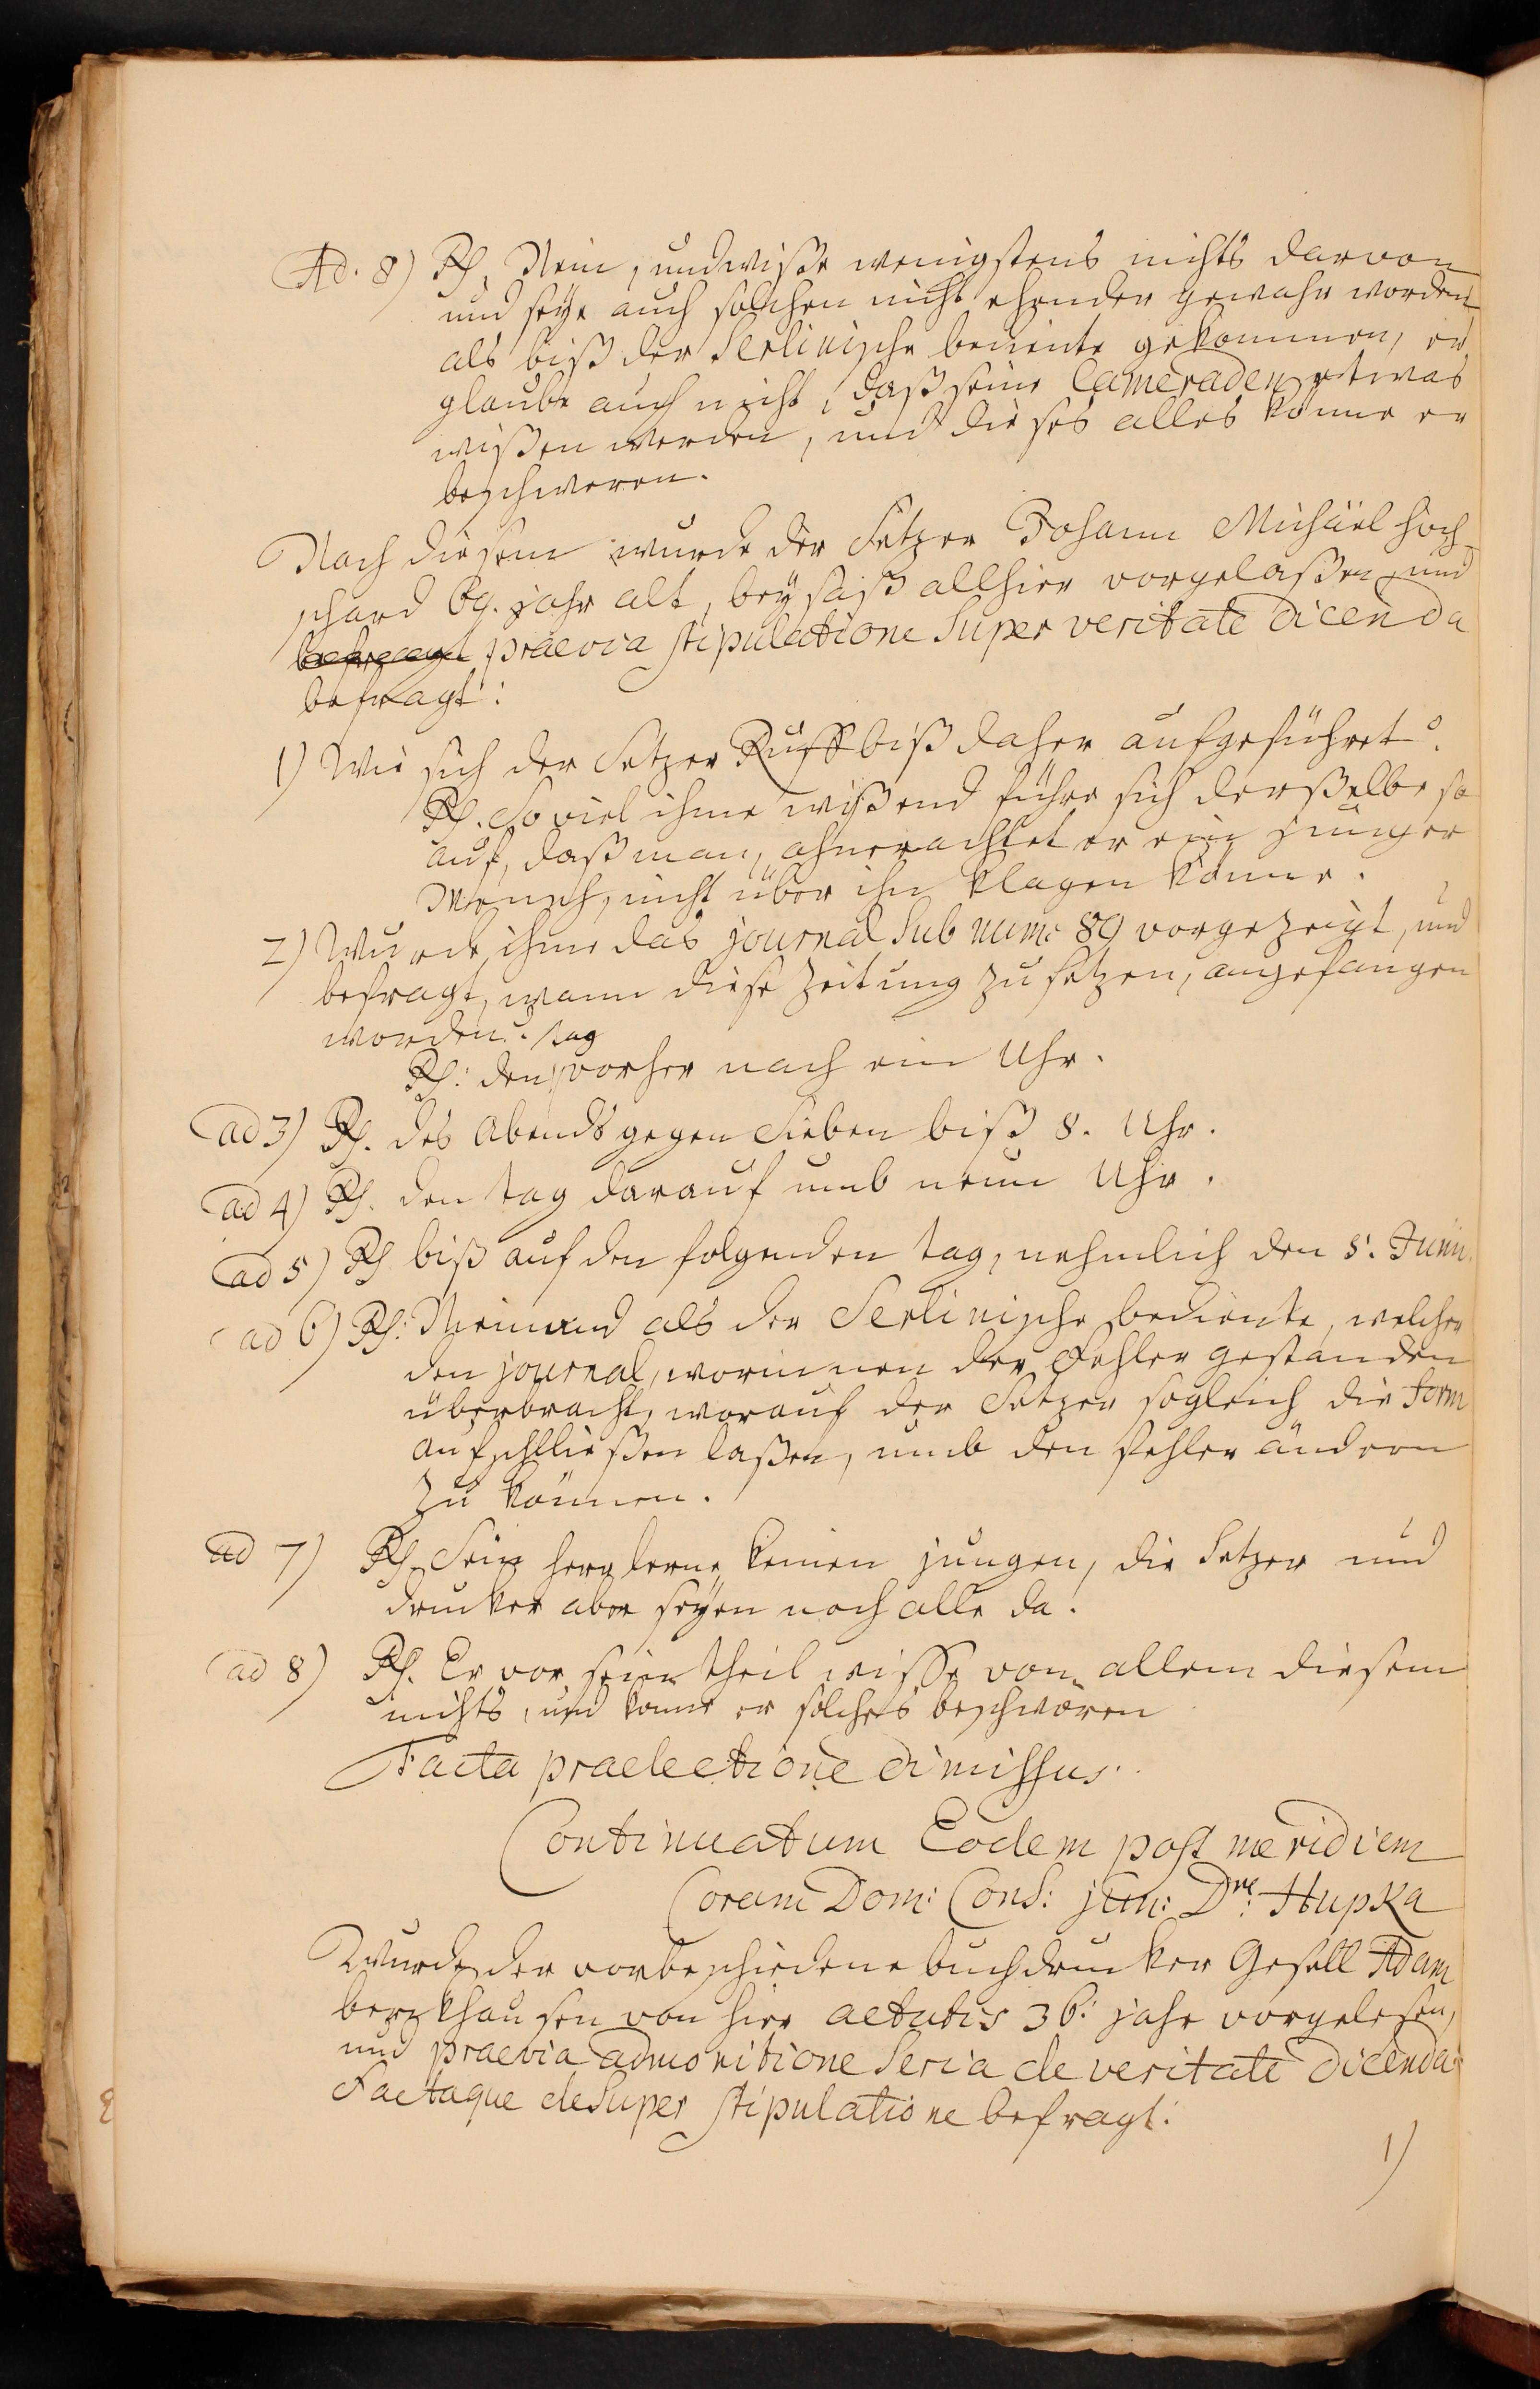 Ad. 8) Rs. Nein, und wiße wenigstens nichts darvon
und seye auch solchen nicht ehender gewahr worden
als biß der Serlinische bediente gekommen, er
glaube auch nicht, daß seine Cameraden etwas
wißen werden, und dieses alles könne er
beschweren.
Nach diesem wurde der Setzer Johann Michäel Hoch-
schard 69. jahr alt, beysaß allhier vorgelaßen und
befragt praevia stipulatione super veritate dicenda
befragt:
1) Wie sich der Setzer Ruff biß daher aufgeführet?
Rs. So viel ihme wißend führe sich derselbe so
auf, daß man, ohnerachtet er ein junger
Mensch, nicht über ihn klagen könne.
2) Wurde ihme das journal sub num: 89 vorgezeigt, und
befragt, wann diese Zeitung zu setzen, angefangen
worden? tag
Rs: den vorher nach ein Uhr.
ad 3) Rs. des Abends gegen Sieben biß 8. Uhr.
ad 4) Rs. den tag darauf umb neun Uhr.
ad 5) Rs biß auf den folgenden tag, nehmlich den 5. Junii.
ad 6) Rs: Niemand als der Serlinische bediente, welcher
den journal, worinnen der Fehler gestanden
überbracht, worauf der Setzer sogleich die Form
aufschließen laßen, umb den fehler ändern
zu können.
ad 7) Rs. Sein herr lerne keinen jungen, die Setzer und
drucker aber seyen noch alle da.
ad 8) Rs. Er vor sein theil wisse von allem diesem
nichts, und könne er solches beschwören
Facta praelectione dimissus.
Continuatum Eodem post meridiem
Coram Dom: Cons: jun: Dre: Hupka
Wurde der vorbeschiedene buchdrucker Gesell Adam
berckhausen von hier aetatis 36. jahr vorgelesen,
und praevia admonitione seria de veritate dicenda
Factaque desuper stipulatione befragt:
1)